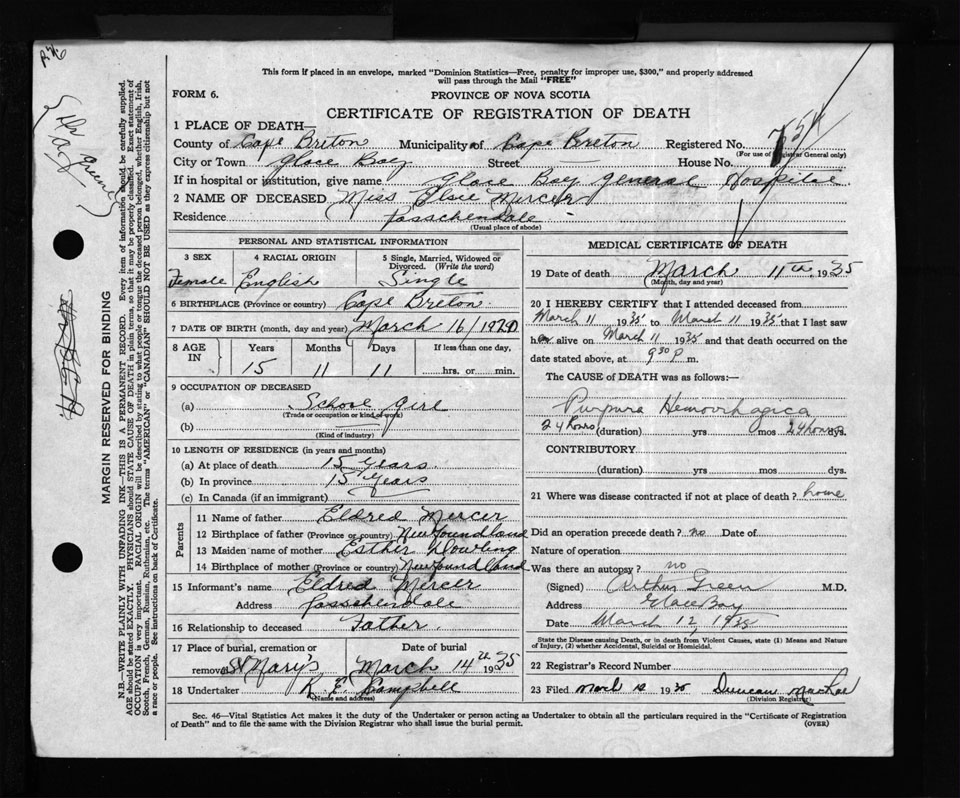 This form if placed in an envelope, marked "Dominion Statistics—Free, penalty for improper use, $300," and properly addressed
will pass through the Mail "FREE"
FORM 6.
PROVINCE OF NOVA SCOTIA
CERTIFICATE OF REGISTRATION OF DEATH
1 PLACE OF DEATH—
County of Cape Breton Municipality of Cape Breton Registered No.
(For use of Registrar General only)
City or Town Glace Bay Street House No.
If in hospital or institution, give name Glace Bay General Hospital
2 NAME OF DECEASED Miss Elsie Mercer
Residence Passchendale
(Usual place of abode)
PERSONAL AND STATISTICAL INFORMATION
3 SEX 4 RACIAL ORIGIN 5 Single, Married, Widowed or Divorced. (Write the word)
Female English Single
6 BIRTHPLACE (Province or country) Cape Breton
7 DATE OF BIRTH (month, day and year) March 16/1920
8 AGE IN Years Months Days If less than one day,
15 11 11 hrs. or min.
9 OCCUPATION OF DECEASED
(a) School Girl
(Trade or occupation or kind of work)
(b)
(Kind of industry)
10 LENGTH OF RESIDENCE (in years and months)
(a) At place of death 15 Years
(b) In province 15 Years
(c) In Canada (if an immigrant)
Parents
11 Name of father Eldred Mercer
12 Birthplace of father (Province or country) Newfoundland
13 Maiden name of mother Esther Dowling
14 Birthplace of mother (Province or country) Newfoundland
15 Informant's name Eldred Mercer
Address Passchendale
16 Relationship to deceased Father
17 Place of burial, cremation or removal St Mary's Date of burial March 14th 1935
18 Undertaker R. E. Campbell
(Name and address)
MEDICAL CERTIFICATE OF DEATH
19 Date of death March 11th, 1935
(Month, day and year)
20 I HEREBY CERTIFY that I attended deceased from
March 11 1935 to March 11 1935 that I last saw
her alive on March 11 1935 and that death occurred on the
date stated above, at 9 30 p m.
The CAUSE OF DEATH was as follows:—
Purpura Hemorrhagica
24 hours (duration) yrs mos 24 hours dys.
CONTRIBUTORY
(duration) yrs mos dys.
21 Where was disease contracted if not at place of death? home
Did an operation precede death? no Date of
Nature of operation
Was there an autopsy? no
(Signed) Arthur Green M.D.
Address Glace Bay
Date March 12, 1935
State the Disease causing Death, or in death from Violent Causes, state (1) Means and Nature
of Injury, (2) whether Accidental, Suicidal or Homicidal.
22 Registrar's Record Number
23 Filed March 1935 Duncan MacRae
(Division Registrar)
Sec. 46—Vital Statistics Act makes it the duty of the Undertaker or person acting as Undertaker to obtain all the particulars required in the "Certificate of Registration
of Death" and to file the same with the Division Registrar who shall issue the burial permit.
(OVER)
MARGIN RESERVED FOR BINDING
N.B.—WRITE PLAINLY WITH UNFADING INK—THIS IS A PERMANENT RECORD. Every item of information should be carefully supplied.
AGE should be stated EXACTLY. PHYSICIANS should STATE CAUSE OF DEATH in plain terms, so that it may be properly classified. Exact statement of
OCCUPATION is very important. RACIAL ORIGIN will be described by stating to what people or tongue the deceased person belonged, whether English, Irish,
Scotch, French, German, Russian, Ruthenian, etc. The terms "AMERICAN" or "CANADIAN" SHOULD NOT BE USED as they express citizenship but not
a race or people. See instructions on back of Certificate.